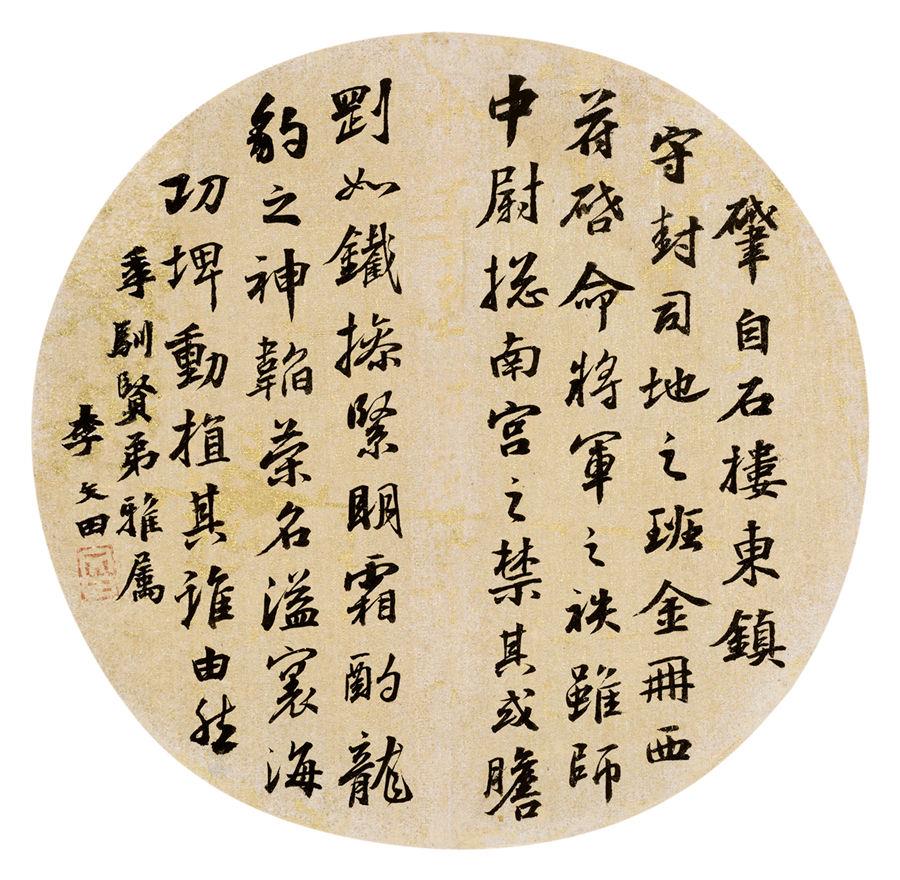 肇自石樓東鎮
守封司地之班金冊西
符啓命將軍之秩雖師
中尉總南宮之禁其或膽
剛如鐵操緊明霜酌龍
豹之神韜榮名溢寰海
功埤動植其誰由然
季馴賢弟雅屬
李文田